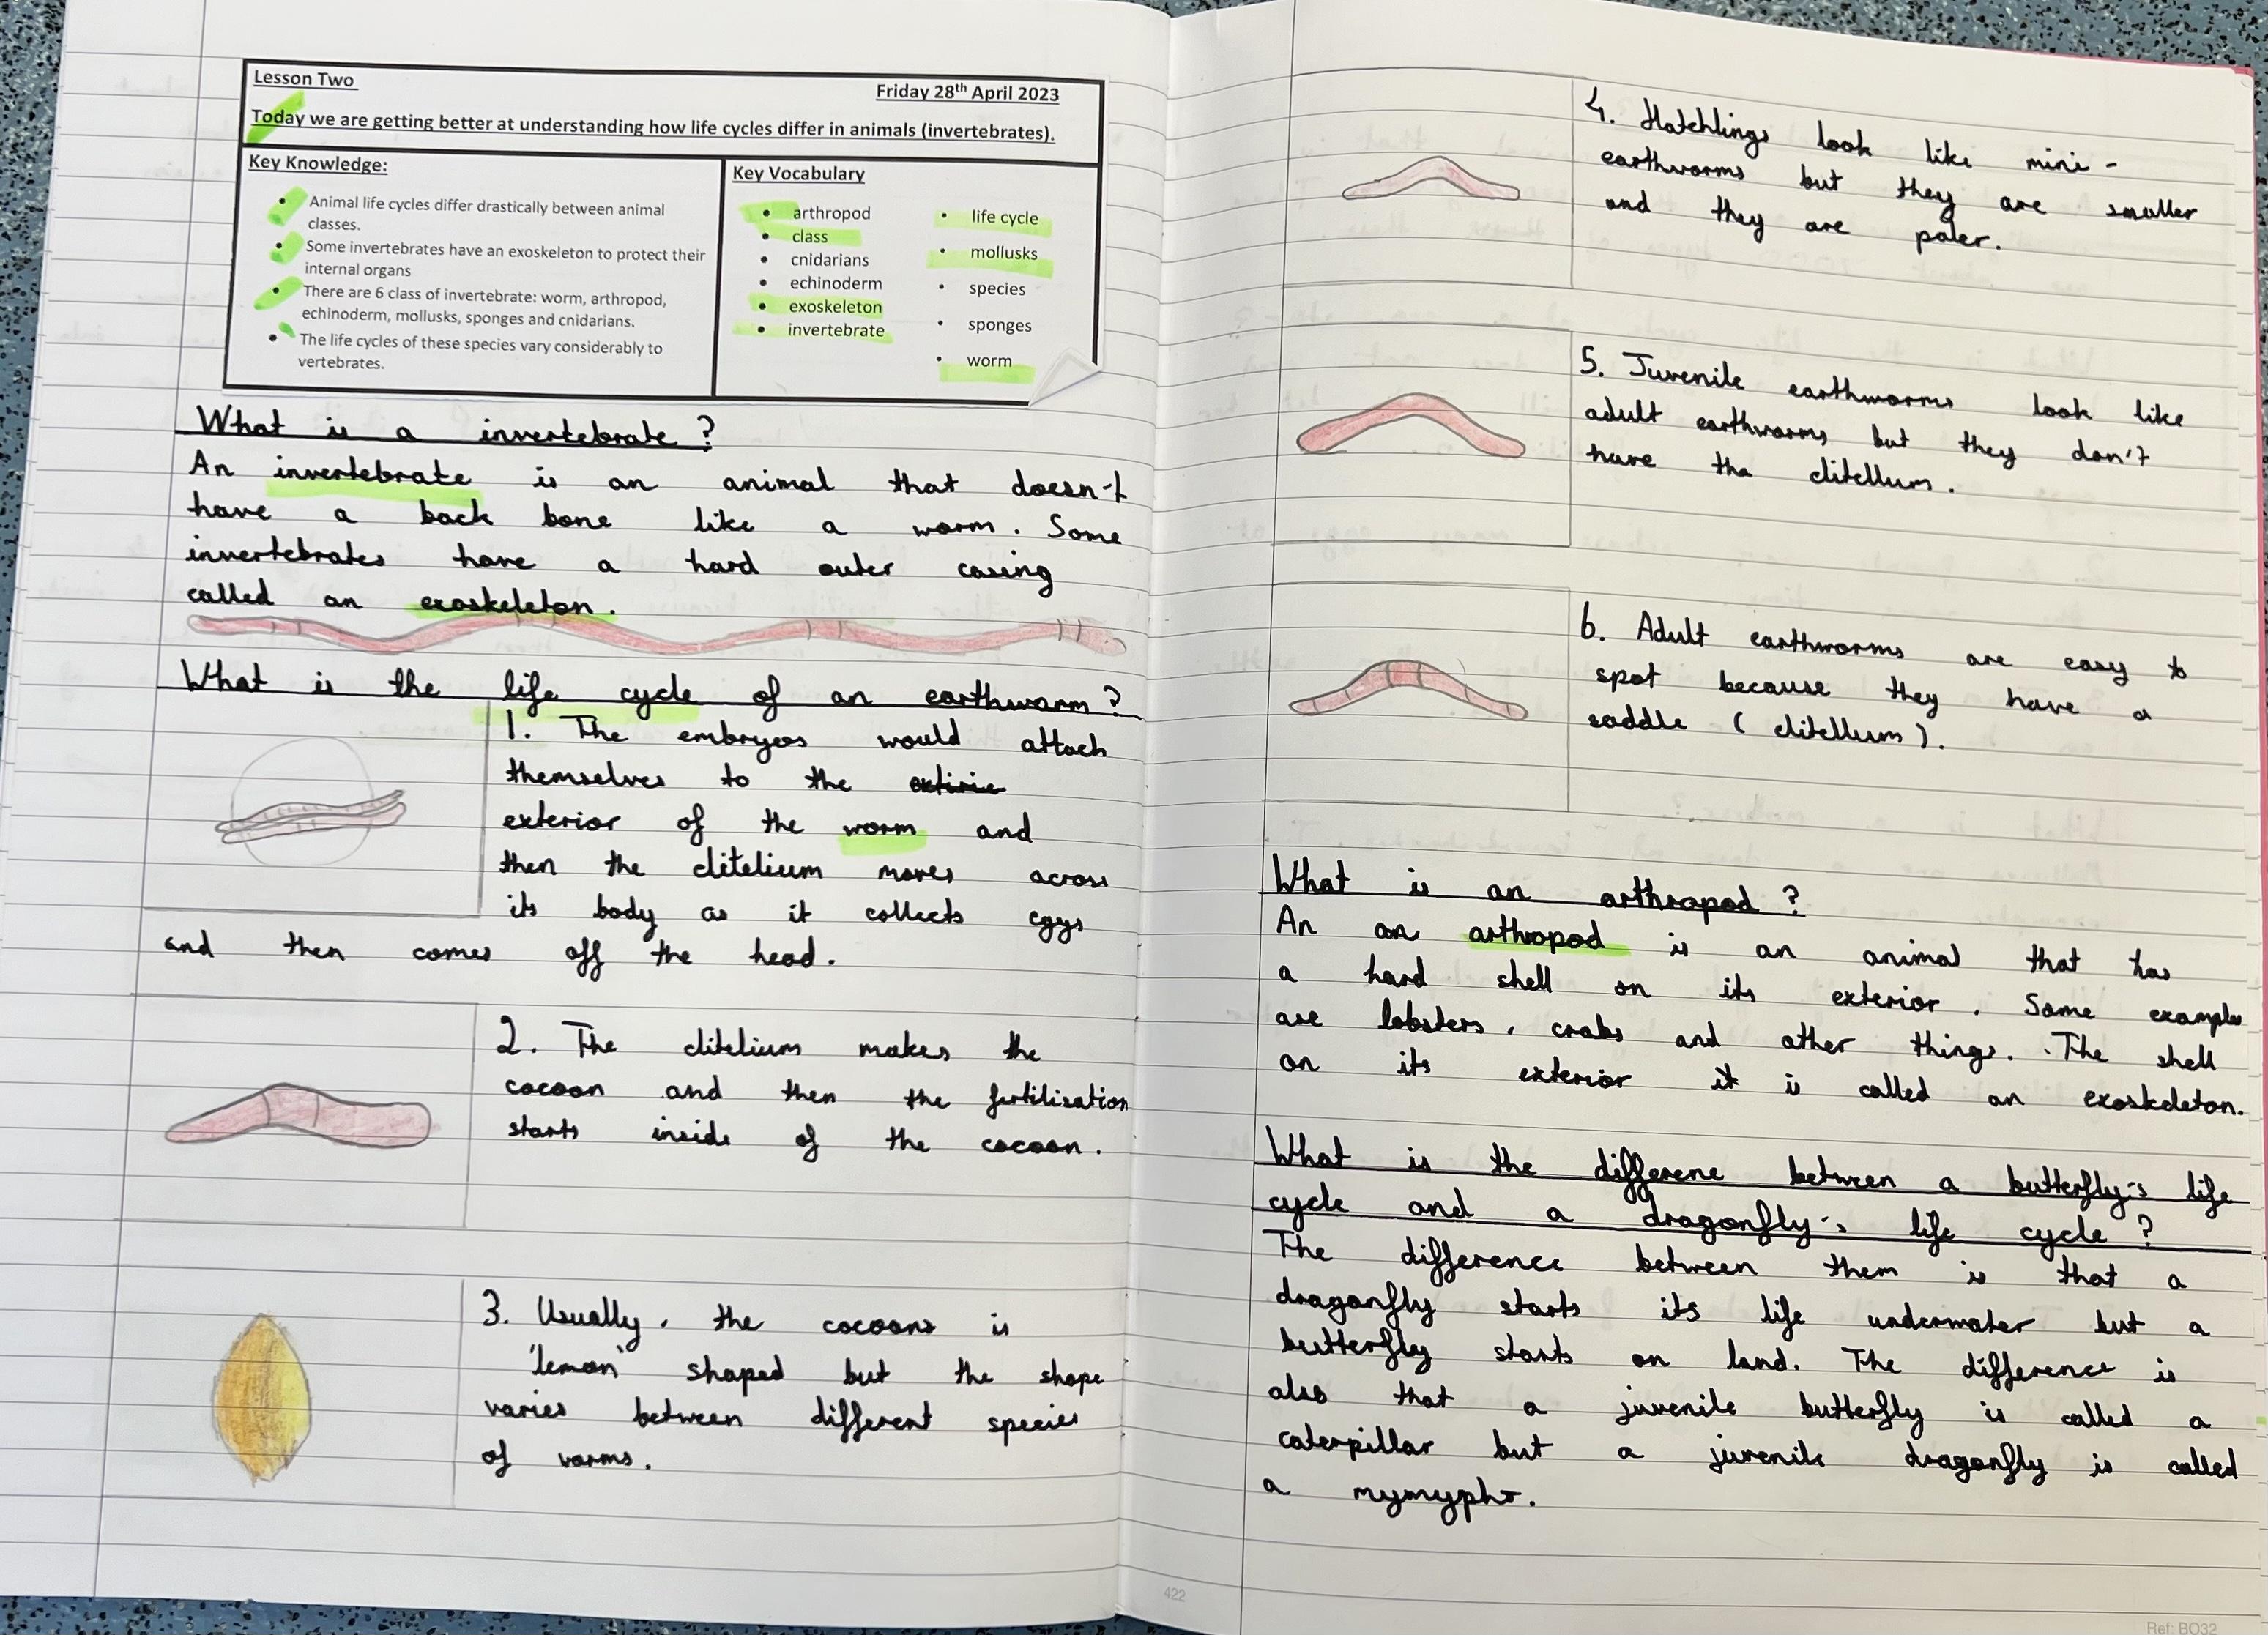 Lesson Two
Friday 28th April 2023
Today we are getting better at understanding how life cycles differ in animals (invertebrates).
Key Knowledge:
• Animal life cycles differ drastically between animal
classes.
• Some invertebrates have an exoskeleton to protect their
internal organs
• There are 6 class of invertebrate: worm, arthropod,
echinoderm, mollusks, sponges and cnidarians.
• The life cycles of these species vary considerably to
vertebrates.
Key Vocabulary
• arthropod
• class
• cnidarians
• echinoderm
• exoskeleton
• invertebrate
• life cycle
• mollusks
• species
• sponges
• worm
What is a invertebrate?
An invertebrate is an animal that doesn't
have a back bone like a worm. Some
invertebrates have a hard outer casing
called an exoskeleton.
What is the life cycle of an earthworm?
1. The embryos would attach
themselves to the
exterior of the worm and
then the clitelium moves across
its body as it collects eggs
and then comes off the head.
2. The clitelium makes the
cocoon and then the fertilisation
starts inside of the cocoon.
3. Usually, the cocoons is
'lemon' shaped but the shape
varies between different species
of worms.
4. Hatchlings look like mini-
earthworms but they are smaller
and they are paler.
5. Juvenile earthworms look like
adult earthworms but they don't
have the clitellum.
6. Adult earthworms are easy to
spot because they have a
saddle (clitellum).
What is an arthropod?
An an arthropod is an animal that has
a hard shell on its exterior. Some examples
are lobsters, crabs and other things. The shell
on its exterior it is called an exoskeleton.
What is the differene between a butterfly's life
cycle and a dragonfly's life cycle?
The difference between them is that a
dragonfly starts its life underwater but a
butterfly starts on land. The difference is
also that a juvenile butterfly is called a
caterpillar but a juvenile dragonfly is called
a
422
Ref: BO32